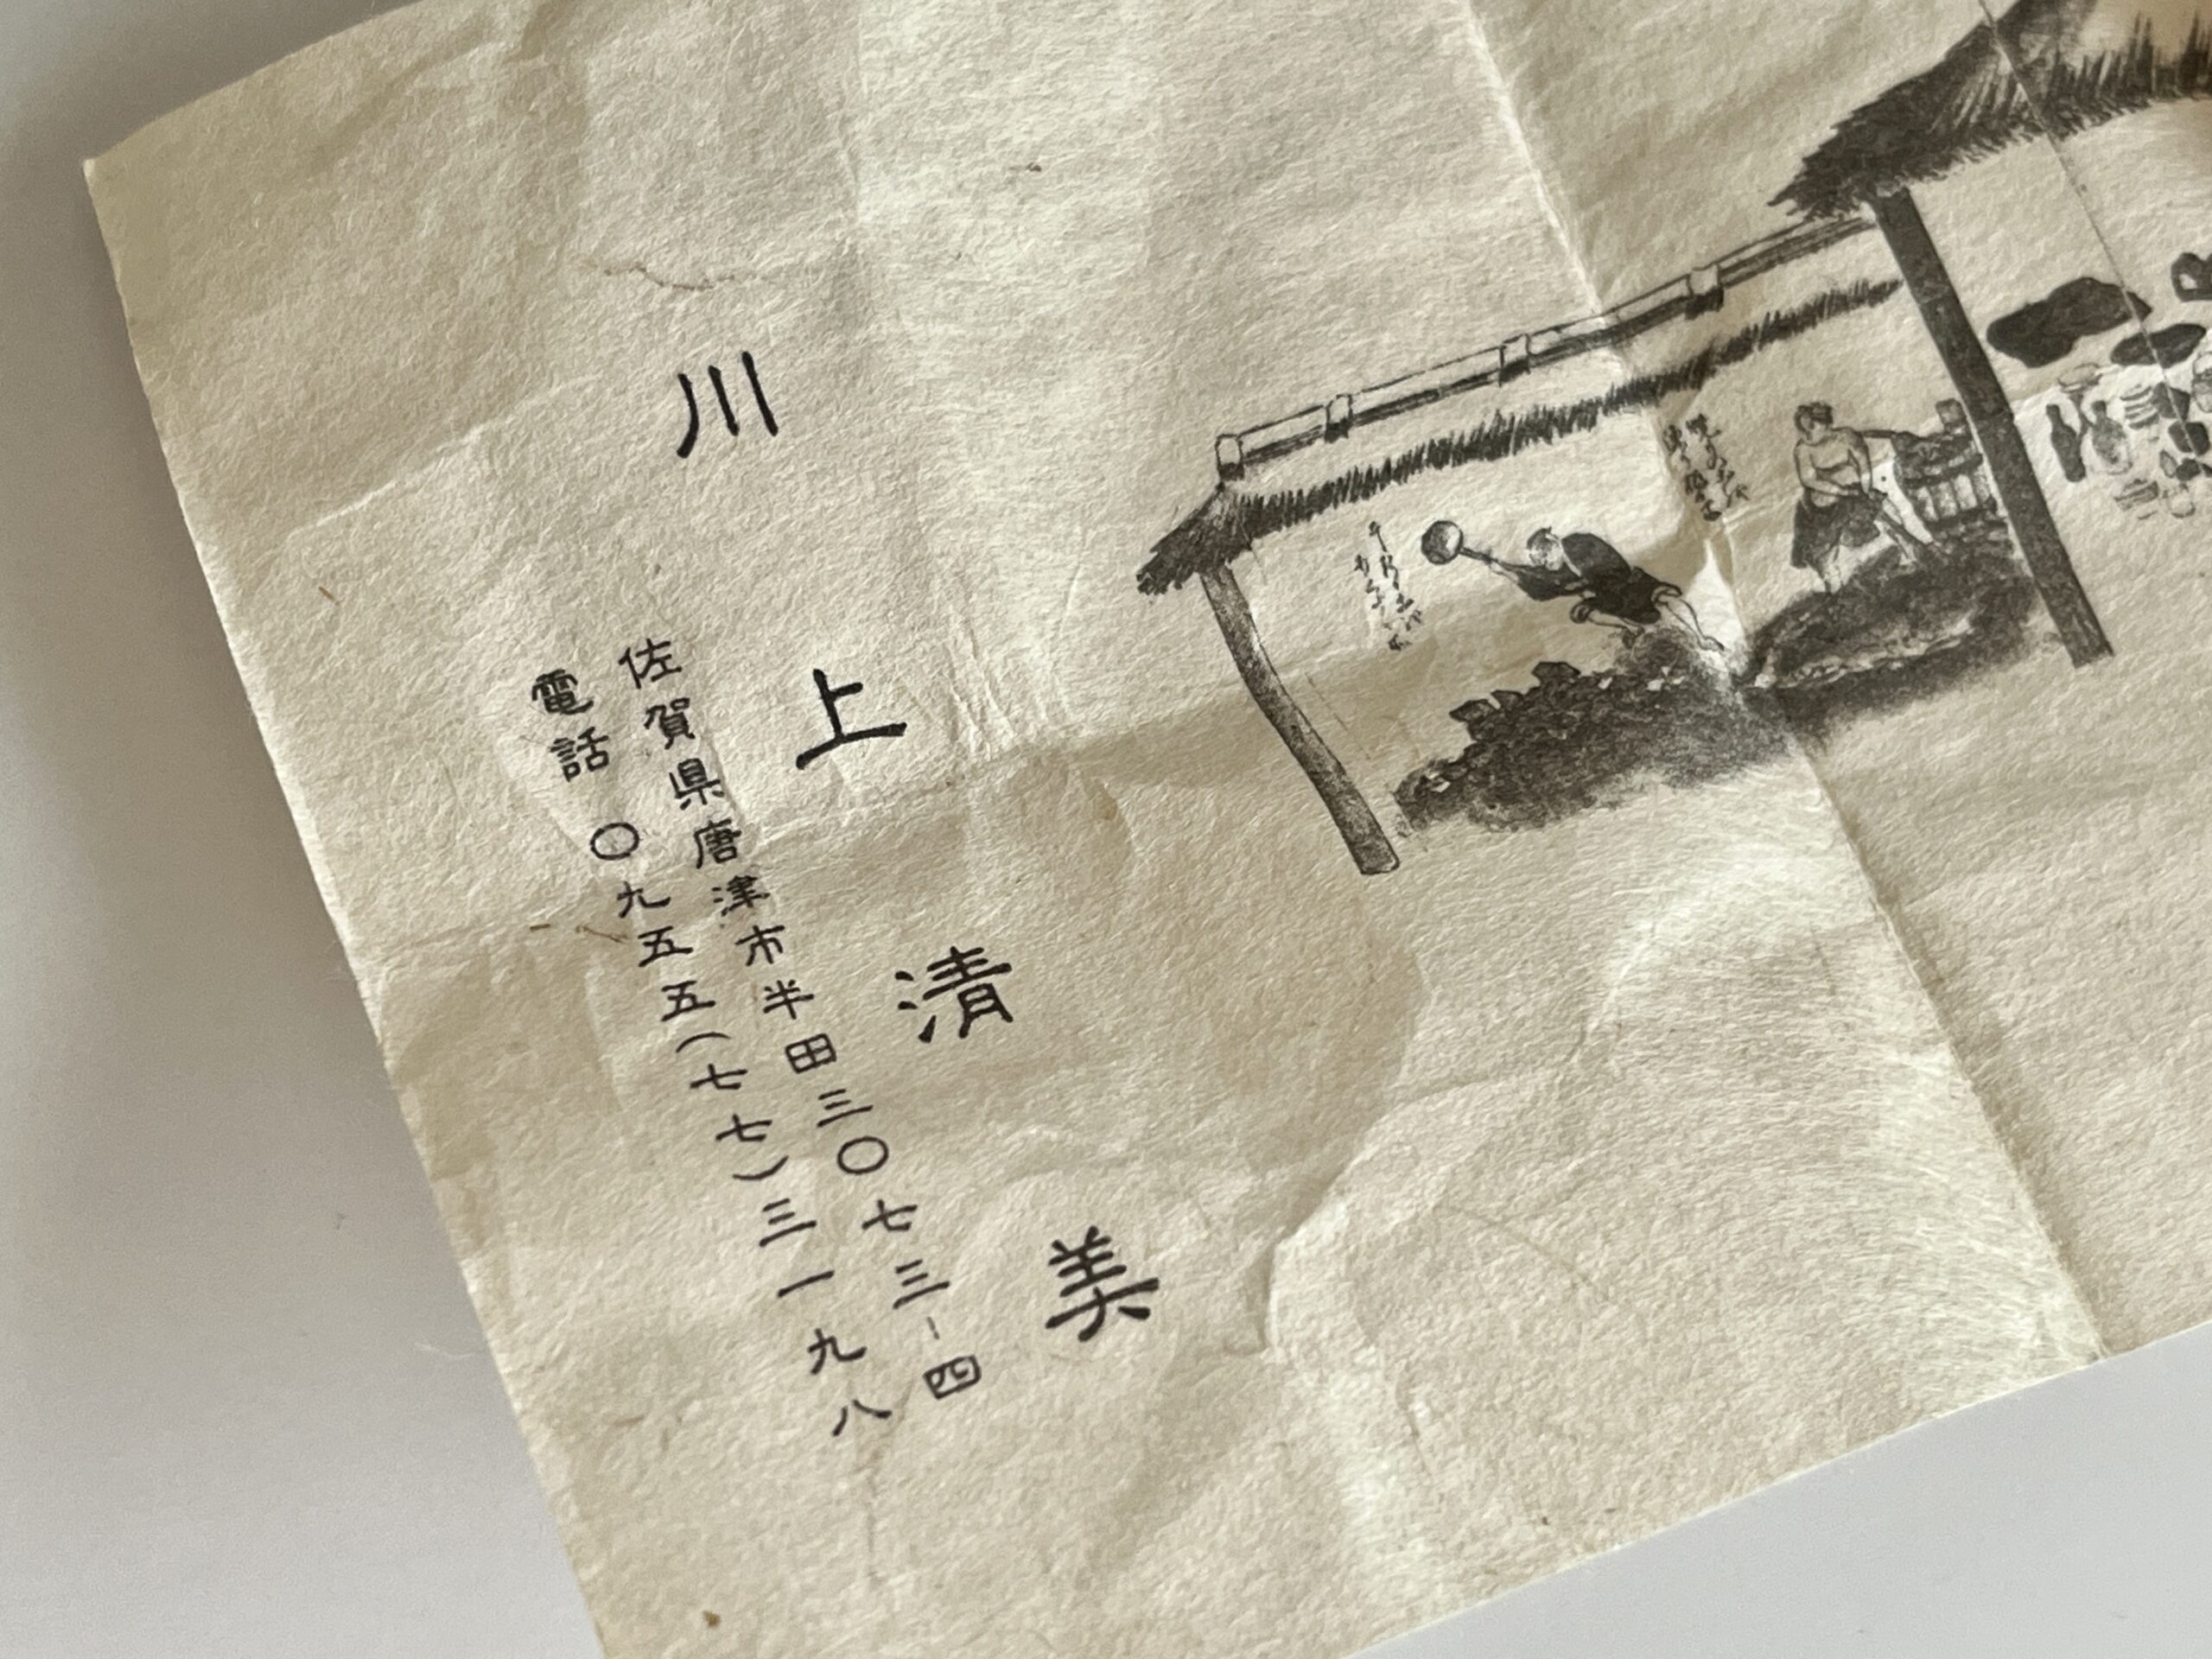 川上清美
佐賀県唐津市半田三〇七三-四
電話 〇九五五(七七)三一九八